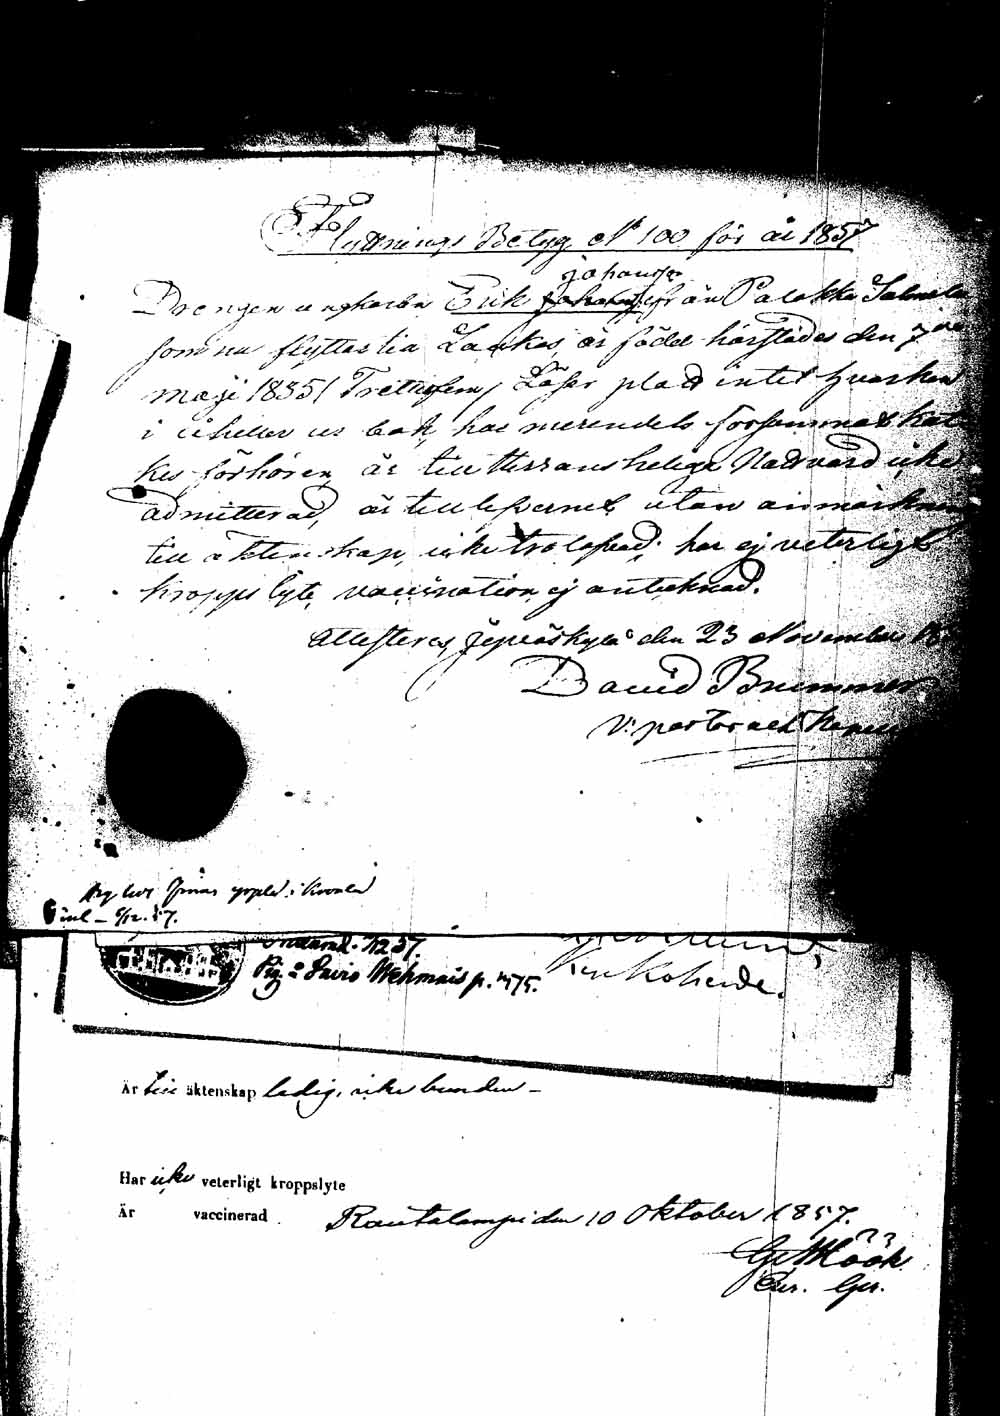 Flyttnings Betyg N 100 för år 1857
Johansson
Drengen ungkarln Erik från Palokka
som nu flyttas till Laukas, är född härstädes den 7
maji 1835 (Trettiofem) Läser platt intet hvarken
i eller ur bok, har merendels försummat
förhören, är till Herrans heliga Nattvard icke
admitterad, är till lefvernet utan anmärkning
till äktenskap icke trolofvad. har ej veterligt
kroppslyte, vaccination ej anteknad.
Attesteras, Jyväskylä den 23 November
David Brummer
V. pastor och
i Kvarlen
inl - 12. 57.
12 57.
Pig. Savio Wehmais p. 475.
Kyrkoherde.
Är till äktenskap ledig, icke bunden -
Har icke veterligt kroppslyte
Är vaccinerad
Rautalampi den 10 Oktober 1857.
Höök